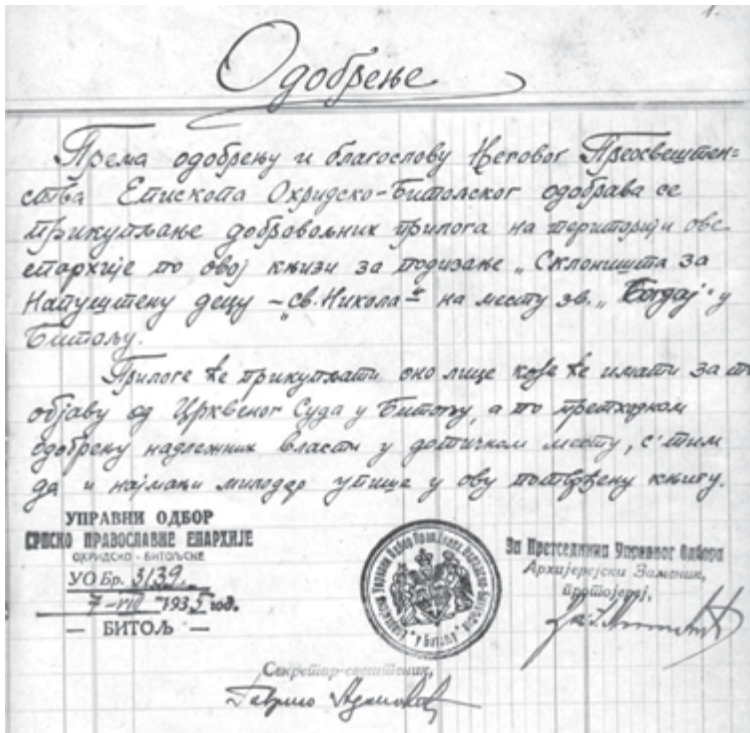 1.
Одобрење
Према одобрењу и благослову Његовог Преосвештен=
ства Епископа Охридско-Битољског одобрава се
прикупљање добровољних прилога на територији ове
епархије по овој књизи за подизање „Склоништа за
Напуштену децу – „св. Никола" – на месту зв. „Богдај" у
Битољу.
Прилоге ће прикупљати оно лице које ће имати за т
објаву од Црквеног Суда у Битољу, а по претходном
одобрењу надлежних власти у дотичном месту, с'тим
да и најмањи милодар упише у ову потврђену књигу.
УПРАВНИ ОДБОР
СРПСКО ПРАВОСЛАВНЕ ЕПАРХИЈЕ
ОХРИДСКО - БИТОЉСКЕ
УО Бр. 3139.
7-VIII 1935 год.
— БИТОЉ —
За Претседника Управног Одбора
Архијерејски Заменик,
протојереј,
Секретар-свештеник,